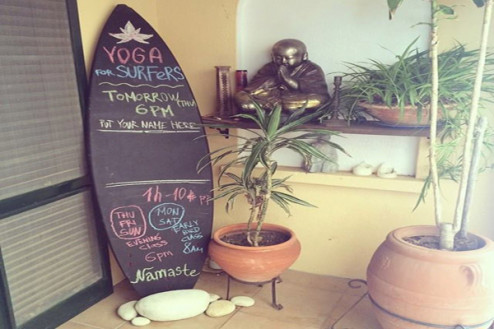 YOGA
FOR SURFERS
TOMORROW (THU)
6PM
PUT YOUR NAME HERE
1h-10$ PP
THU
FRI
SUN
EVENING
CLASS
6pm
MON
SAT
EARLY
BIRD
CLASS
8AM
Namaste